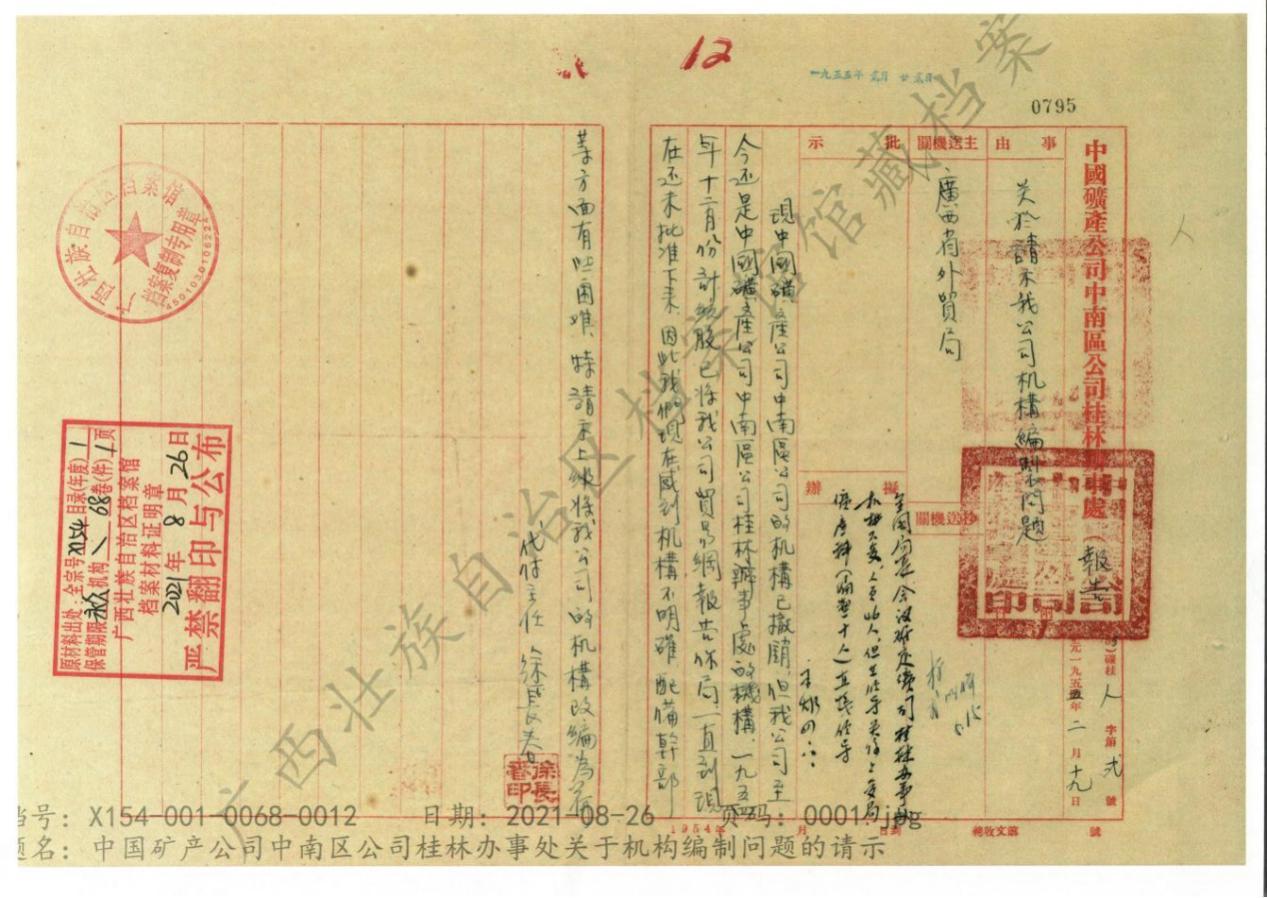 12
一九五五年 贰月 廿贰日
0795
中國礦產公司中南區公司桂林辦事處（報告）
礦桂 人 字第 弍 號
公元一九五五年二月十九日
事由
关於請示我公司机構編制问題
主送機關
廣西省外貿局
抄送機關
批示
擬辦
現中國礦產公司中南區公司的机構已撤銷,但我公司至
今还是中國礦產公司中南區公司桂林辦事處的機構,一九五四
年十二月份計統股已将我公司貿易網報告你局,一直到現
在还未批准下来,因此我們現在感到机構不明確,配備幹部
等方面有些困难,特請示上级将我公司的机構改編為荷
代付主任 徐長春
徐長春印
1954年 月 日到
總收文號 號
广西壮族自治区档案馆
档案复制专用章
4501030106222
原材料出处：全宗号X154目录(年度)1
保管期限永久机构\68卷(件)1页
广西壮族自治区档案馆
档案材料证明章
2021年8月26日
严禁翻印与公布
广西壮族自治区档案馆馆藏档案
档号: X154-001-0068-0012 日期: 2021-08-26 页码: 0001.jpg
题名: 中国矿产公司中南区公司桂林办事处关于机构编制问题的请示